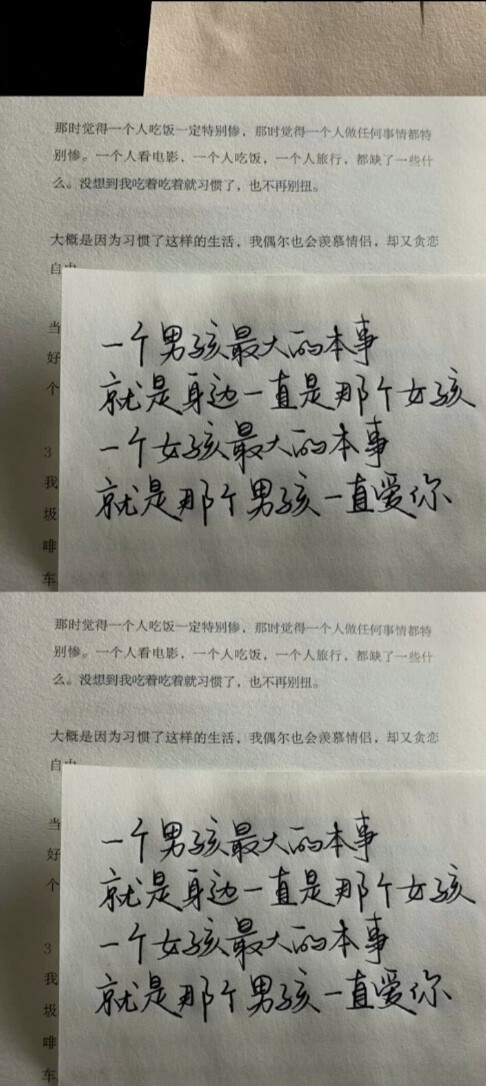 那时觉得一个人吃饭一定特别惨，那时觉得一个人做任何事情都特
别惨。一个人看电影，一个人吃饭，一个人旅行，都缺了一些什
么。没想到我吃着吃着就习惯了，也不再别扭。
大概是因为习惯了这样的生活，我偶尔也会羡慕情侣，却又贪恋
自由
当
好
个
3
我
圾
啡
车
一个男孩最大的本事
就是身边一直是那个女孩
一个女孩最大的本事
就是那个男孩一直爱你
那时觉得一个人吃饭一定特别惨，那时觉得一个人做任何事情都特
别惨。一个人看电影，一个人吃饭，一个人旅行，都缺了一些什
么。没想到我吃着吃着就习惯了，也不再别扭。
大概是因为习惯了这样的生活，我偶尔也会羡慕情侣，却又贪恋
自由
当
好
个
3
我
圾
啡
车
一个男孩最大的本事
就是身边一直是那个女孩
一个女孩最大的本事
就是那个男孩一直爱你